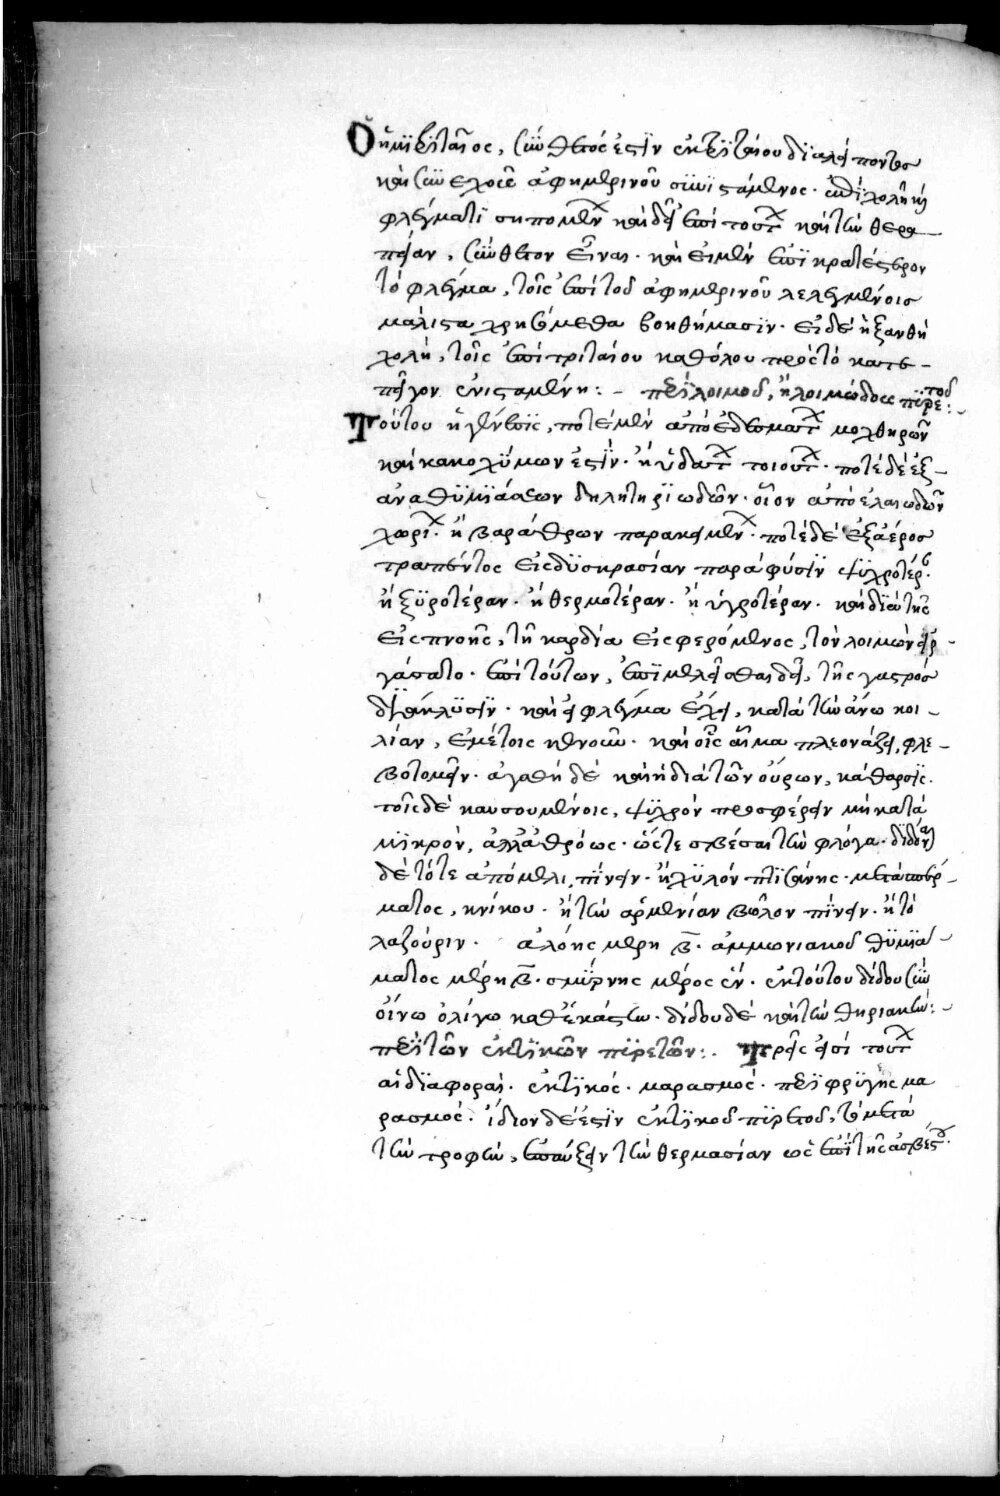 Ὁ ἡμιτριταῖος, σύνθετός ἐστιν ἐκ τριταίου διαλείποντος
καὶ συνεχοῦς ἀφημερινοῦ συνιστάμενος· ἐπὶ χολῇ καὶ
φλέγματι σηπομένων καὶ δεῖ ἐπὶ τούτων καὶ τὴν θερα-
πείαν, σύνθετον εἶναι· καὶ εἰ μὲν ἐπικρατέστερον
τὸ φλέγμα, τοῖς ἐπὶ τοῦ ἀφημερινοῦ λελεγμένοις
μάλιστα χρησόμεθα βοηθήμασιν· εἰ δὲ ἡ ξανθὴ
χολή, τοῖς ἐπὶ τριταίου καθόλου πρὸς τὸ κατε-
πεῖγον ἐνισταμένη:- περὶ λοιμοῦ, ἢ λοιμώδους πυρετοῦ:-
Τούτου ἡ γένεσις, ποτὲ μὲν ἀπὸ ἐδεσμάτων μοχθηρῶν
καὶ κακοχύμων ἐστίν· ἢ ὑδάτων τοιούτων· ποτὲ δὲ ἐξ-
ἀναθυμιάσεων δηλητηριωδῶν· οἷον ἀπὸ ἑλαιωδῶν
χωρίων· ἢ βαράθρων παρακειμένων· ποτὲ δὲ ἐξ ἀέρος
τραπέντος εἰς δυσκρασίαν παρὰ φύσιν ψυχροτέραν·
ἢ ξυροτέραν· ἢ θερμοτέραν· ἢ ὑγροτέραν· καὶ διὰ τῆς
εἰσπνοῆς, τῇ καρδία εἰσφερόμενος, τὸν λοιμὸν εἰρ-
γάσατο· ἐπὶ τούτων, ἐπιμελεῖσθαι δεῖ, τῆς γαστρὸς
διὰ κλύσιν· καὶ εἰ φλέγμα ἔχει, κατὰ τὴν ἄνω κοι-
λίαν, ἐμέτοις κενοῦν· καὶ οἷς αἷμα πλεονάζει, φλε-
βοτομεῖν· ἀγαθὴ δὲ καὶ ἡ διὰ τῶν οὔρων, κάθαρσις.
τοῖς δὲ καυσουμένοις, ψυχρὸν προσφέρειν μὴ κατὰ
μικρόν, ἀλλ' ἀθρόως· ὥστε σβέσαι τὴν φλόγα· διδόναι
δὲ τότε ἀπόμελι πίνειν· ἢ χυλὸν πτισάνης· μετὰ σπέρ-
ματος, κνίκου· ἢ τὴν ἀρμενίαν βῶλον πίνειν· ἢ τὸ
λαζούριν· ἀλόης μέρη β· ἀμμωνιακοῦ θυμιά-
ματος μέρη β· σμύρνης μέρος ἕν· ἐκ τούτου δίδου σὺν
οἴνω ὀλίγω καθ' ἑκάστην· δίδου δὲ καὶ τὴν θηριακήν:-
περὶ τῶν ἑκτικῶν πυρετῶν:. Τρεῖς εἰσὶ τούτων
αἱ διαφοραί· ἑκτικός· μαρασμός· περιφρυγὴς μα
ρασμός· ἴδιον δέ ἐστιν ἑκτικοῦ πυρετοῦ, τὸ μετὰ
τὴν τροφὴν, ἐπαύξειν τὴν θερμασίαν ὡς ἐπὶ τῆς ἀσβέστου·